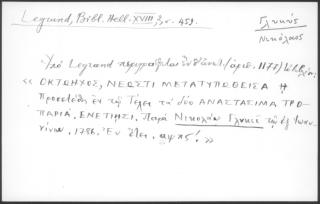 Legrand, Bibl. Hell. XVIII, 2, σ. 459.
Γλυκύς
Νικόλαος
Ὑπὸ Legrand περιγράφεται ἐνθ' ἀνωτ. (ἀριθ. 1178)
« ΟΚΤΩΗΧΟΣ, ΝΕΩΣΤΙ ΜΕΤΑΤΥΠΩΘΕΙΣΑ Ἡ
Προσετέθη ἐν τῷ Τέλει τὰ δύο ΑΝΑΣΤΑΣΙΜΑ ΤΡΟ-
ΠΑΡΙΑ. ΕΝΕΤΙΗΣΙ, Παρὰ Νικολάῳ Γλυκεῖ τῷ ἐξ Ἰωαν-
νίνων. 1786. Ἐν ἔτει, αψπς! »